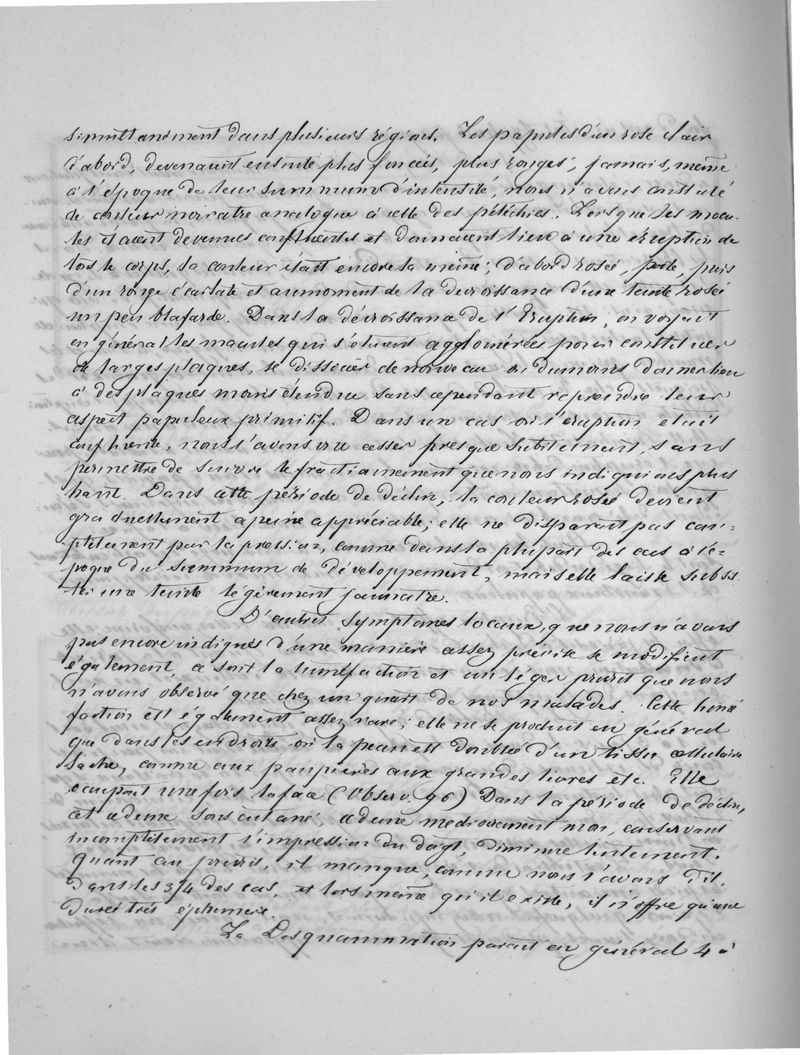 simultanément dans plusieurs régions. Les papules d'un rose clair
d'abord, devenaient ensuite plus foncées, plus rouges; jamais, même
à l'époque de leur summum d'intensité, nous n'avons constaté
de couleur noirâtre analogue à celle des pétéchies. Lorsque les macu-
les étaient devenues confluentes et donnaient lieu à une éruption de
tout le corps, la couleur était encore la même; d'abord rosée, pâle, puis
d'un rouge écarlate et au moment de la décroissance d'une teinte rosée
un peu blafarde. Dans la décroissance de l'Eruption, on voyait
en général les macules qui s'étaient agglomérées pour constituer
de larges plaques, se dissocier de nouveau ou du moins donner lieu
à des plaques moins étendue sans cependant reprendre leur
aspect papuleux primitif. Dans un cas où l'éruption était
confluente, nous l'avons vu cesser presque subitement, sans
permettre de suivre le fractionnement que nous indiquions plus
haut. Dans cette période de déclin, la couleur rosée devient
graduellement à peine appréciable; elle ne disparait pas com-
plètement par la pression, comme dans la plupart des cas à l'é-
poque du summum de développement, mais elle laisse subsis
ter une teinte légèrement jaunâtre.
D'autres symptômes locaux, que nous n'avons
pas encore indiqués d'une manière assez précise se modifient
également, ce sont la tuméfaction et un léger prurit que nous
n'avons observé que chez un quart de nos malades. Cette tumé
faction est également assez rare; elle ne se produit en général
que dans les endroits où la peau est doublée d'un tissu cellulaire
lâche, comme aux paupières aux grandes lèvres etc. Elle
occupait une fois la face (Observ. 96) Dans la période de déclin,
cet œdème sous cutané, œdème médiocrement mou, conservant
incomplètement l'impression du doigt, diminue lentement.
Quant au prurit, il manque, comme nous l'avons dit,
dans les 3/4 des cas, et lors même qu'il existe, il n'offre qu'une
durée très éphémère.
La Desquammation parait en général 4 à